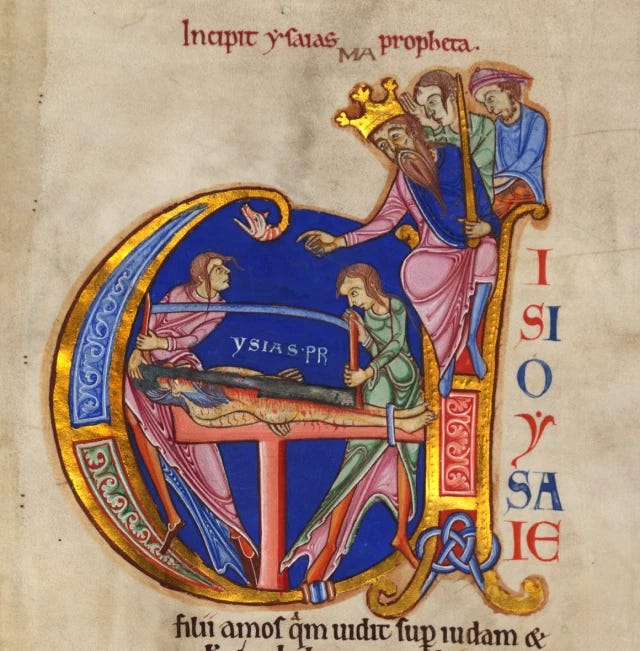 Incipit ysaias propheta.
MA
YSIAS·PR
I
SI
O
Y
SA
IE
filii amos qm uidit sup iudam &